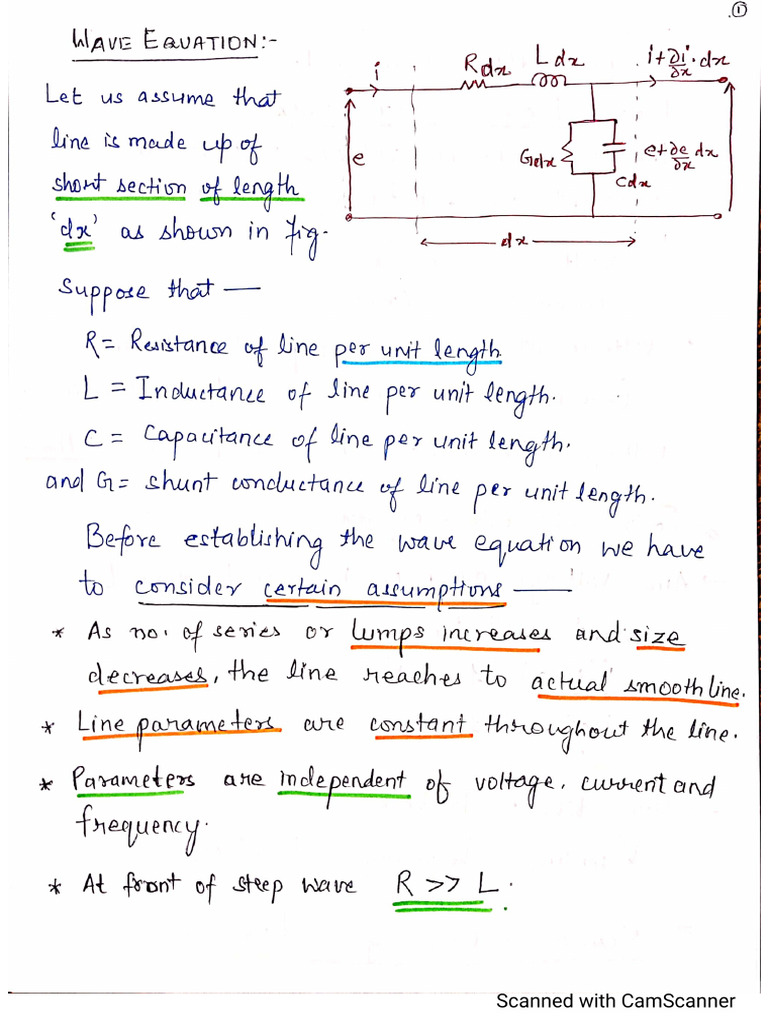 ①
WAVE EQUATION:-
Let us assume that
line is made up of
short section of length
'dx' as shown in Fig.
i
Rdx
Ldx
i+∂i/∂x·dx
e
Gdx
Cdx
e+∂e/∂x dx
dx
Suppose that —
R = Resistance of line per unit length
L = Inductance of line per unit length.
C = Capacitance of line per unit length.
and G = shunt conductance of line per unit length.
Before establishing the wave equation we have
to consider certain assumptions —
* As no. of series or lumps increases and size
decreases, the line reaches to actual smooth line.
* Line parameters are constant throughout the line.
* Parameters are independent of voltage, current and
frequency.
* At front of steep wave R >> L.
Scanned with CamScanner